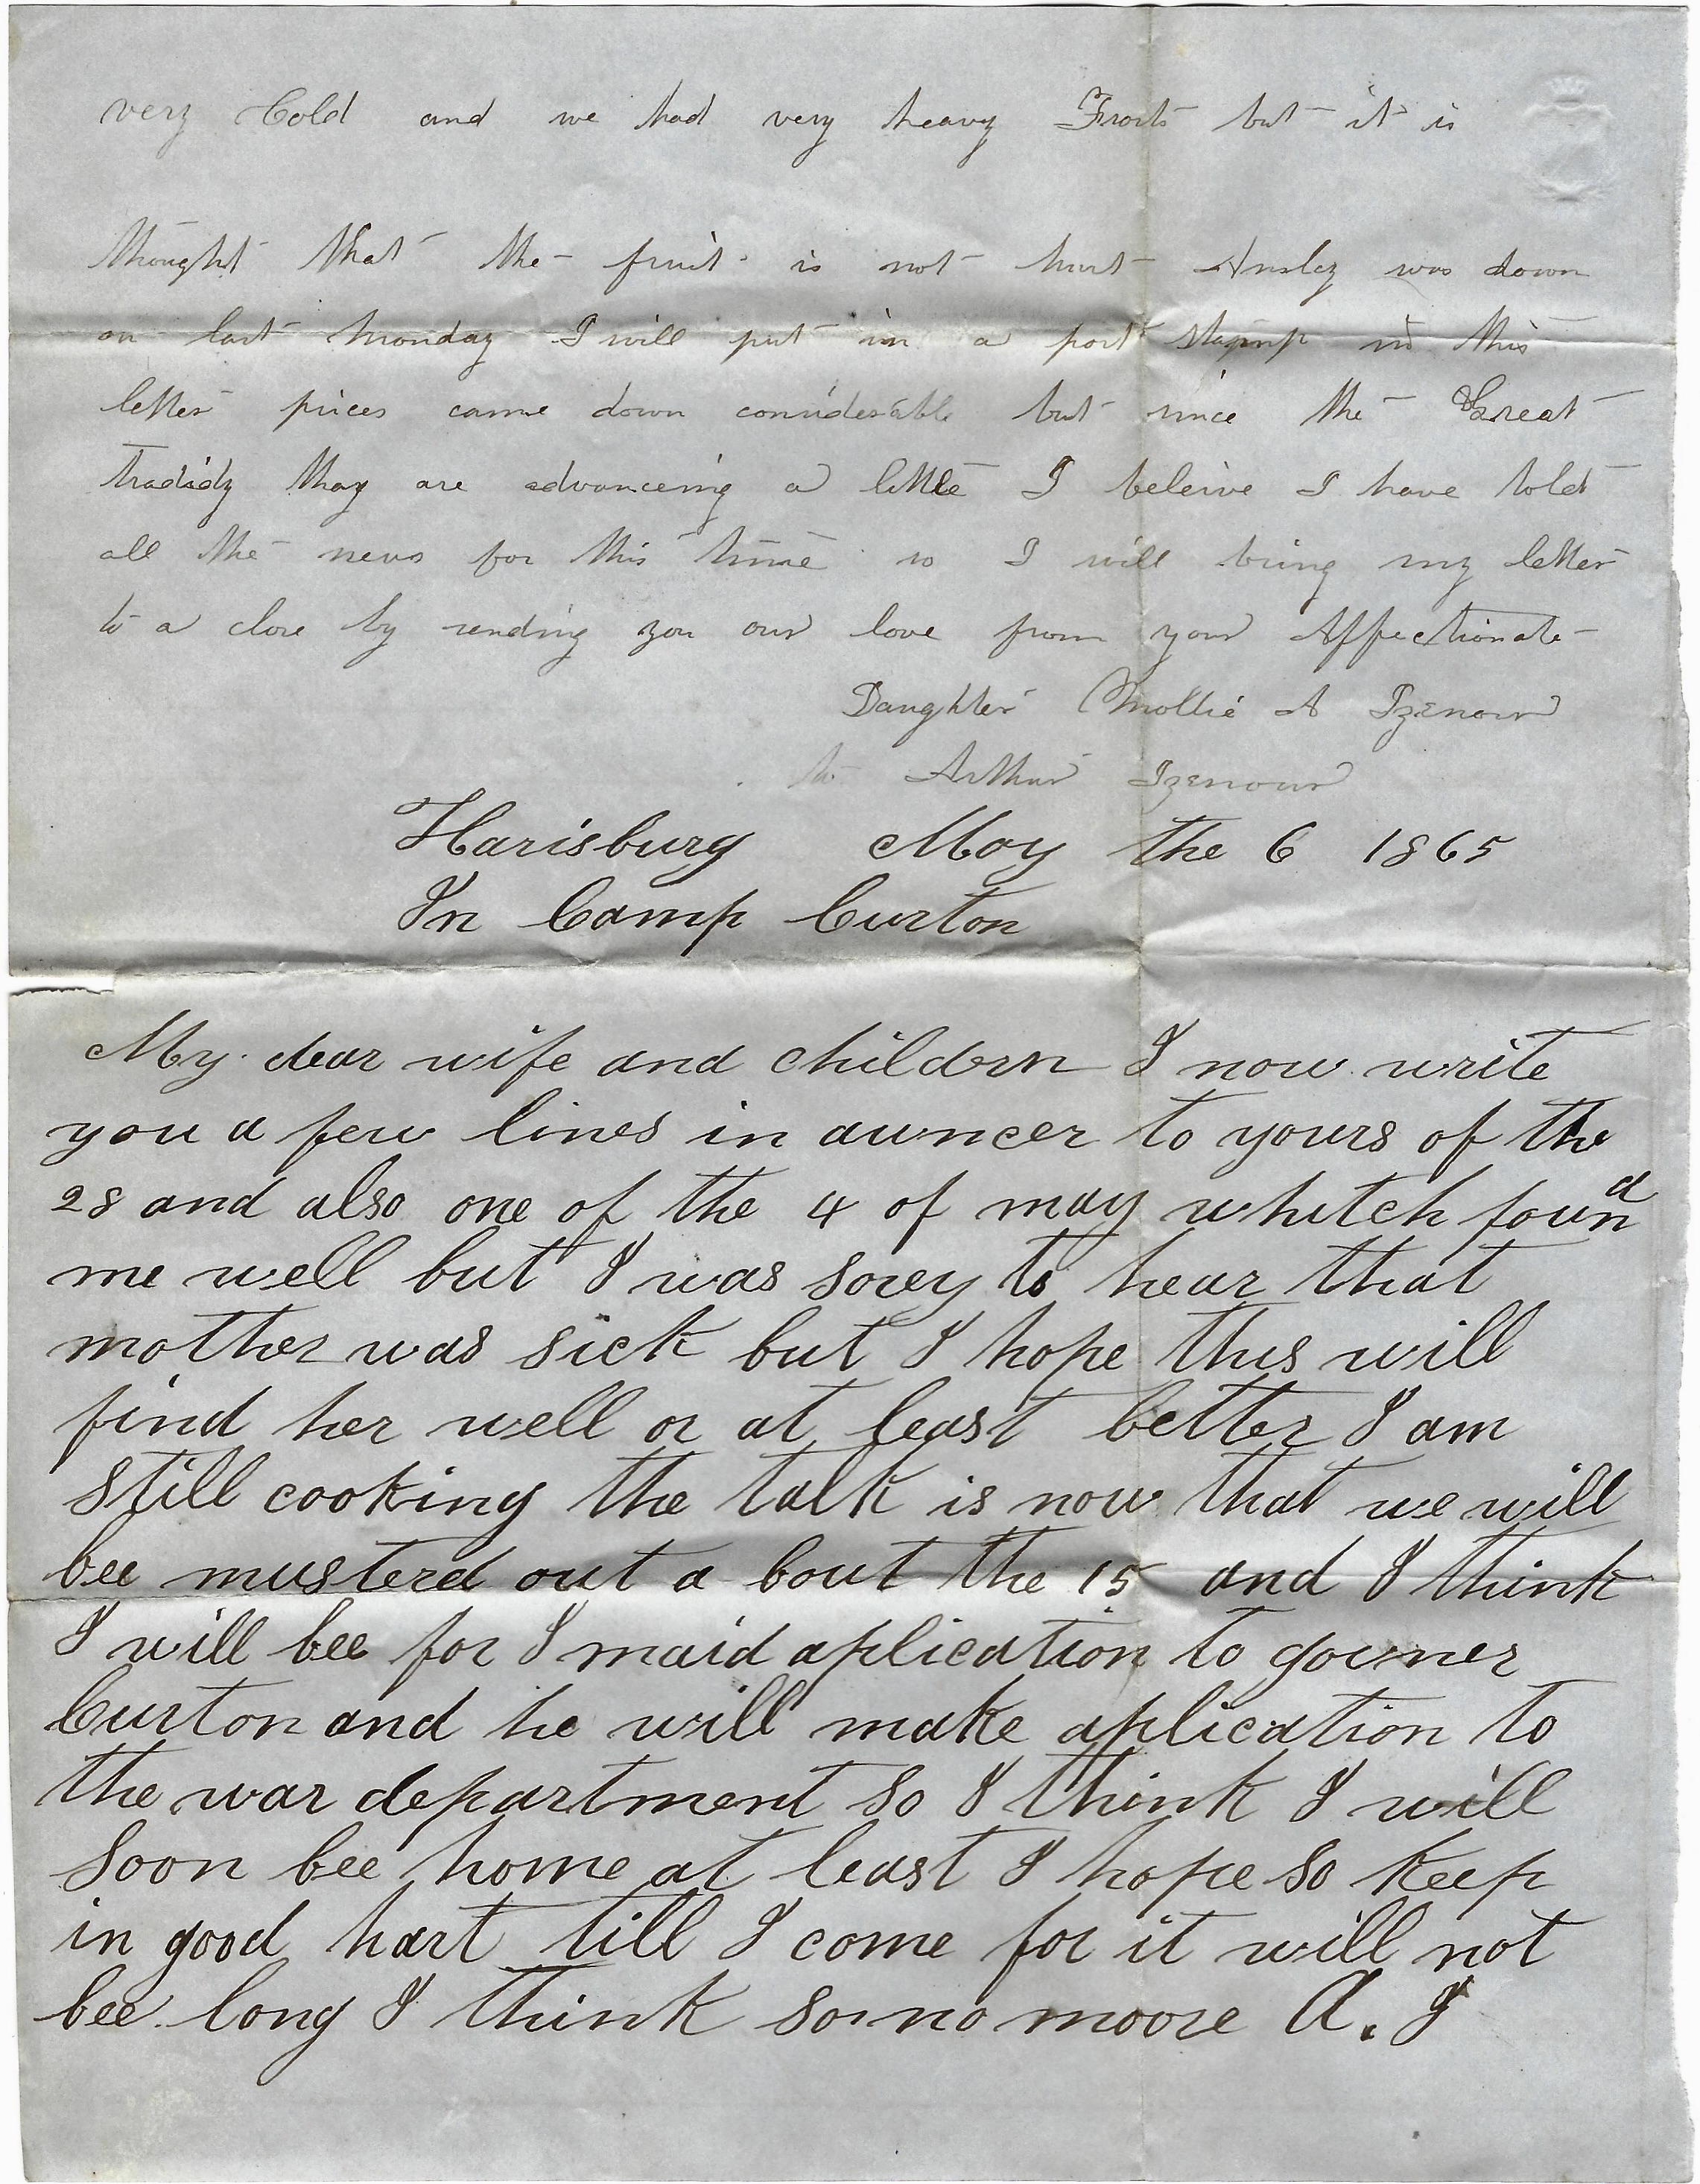 very Cold and we had very heavy Frosts but it is
thought that the fruit is not hurt Ansley was down
on last Monday I will put in a post stamp in this
letter prices came down considerable but since the Great
tradidy thay are advanceing a little I beleive I have told
all the news for this time so I will bring my letter
to a close by sending you our love from your Affectionate
Daughter Mollie A Izenour
to Arthur Izenour
Harisburg May the 6 1865
In Camp Curton
My dear wife and childern I now write
you a few lines in awncer to yours of the
28 and also one of the 4 of may whitch found
me well but I was sorey to hear that
mother was sick but I hope this will
find her well or at least better I am
still cooking the talk is now that we will
bee musterd out a bout the 15 and I think
I will bee for I maid aplication to governer
Curton and he will make aplication to
the war department so I think I will
soon bee home at least I hope so keep
in good hart till I come for it will not
bee long I think so no moore A. I